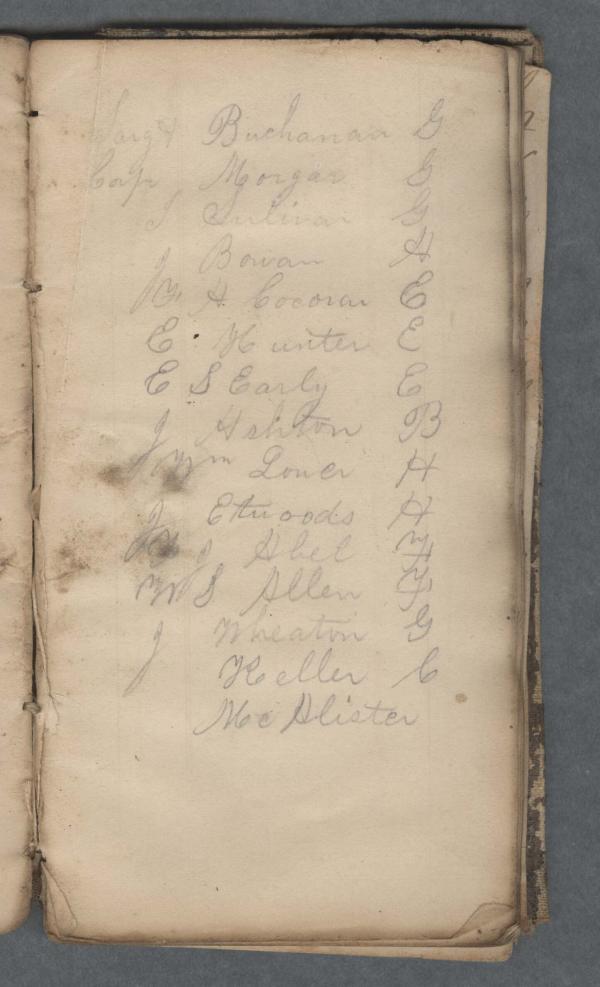 Sargt Buchanan G
Cap Morgan G
J Sulivan G
J Bowan H
M H Cocoran E
E Hunter E
E S Early E
J Ashton B
Wm Loner H
J Etwoods H
J Abel
W S Allen F
J Wheaton G
Keller C
McAlister